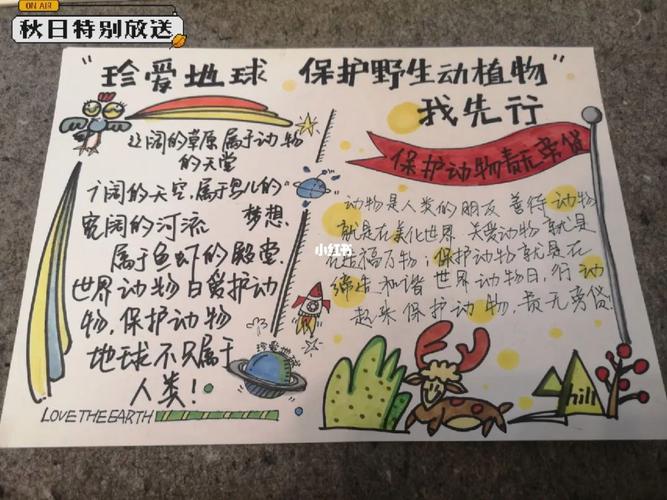 ON AIR
秋日特别放送
"珍爱地球 保护野生动植物"
我先行
辽阔的草原属于动物
的天堂
广阔的天空,属于鸟儿的
梦想
宽阔的河流
属于鱼虾的殿堂.
世界动物日爱护动
物,保护动物
地球不只属于
人类!
LOVE THE EARTH
珍爱地球
小红书
保护动物责无旁贷
动物是人类的朋友 善待动物
就是在美化世界 关爱动物就是
在造福万物;保护动物就是在
缔造和谐世界动物日,行动
起来保护动物,责无旁贷.
hill